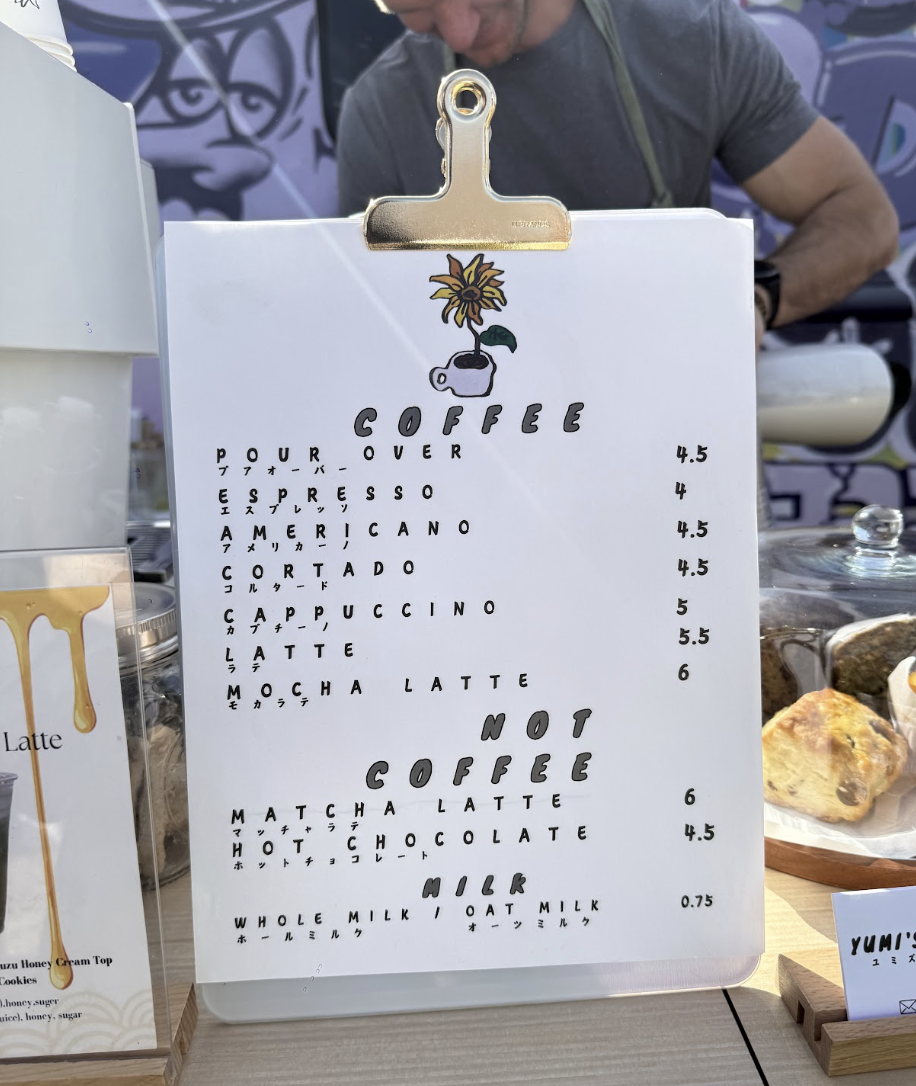 COFFEE
POUR OVER 4.5
プアオーバー
ESPRESSO 4
エスプレッソ
AMERICANO 4.5
アメリカーノ
CORTADO 4.5
コルタード
CAPPUCCINO 5
カプチーノ
LATTE 5.5
ラテ
MOCHA LATTE 6
モカラテ
NOT
COFFEE
MATCHA LATTE 6
マッチャラテ
HOT CHOCOLATE 4.5
ホットチョコレート
MILK
WHOLE MILK / OAT MILK 0.75
ホールミルク オーツミルク
Latte
uzu Honey Cream Top
Cookies
).honey.suger
uice). honey. sugar
YUMI'S
ユミズ